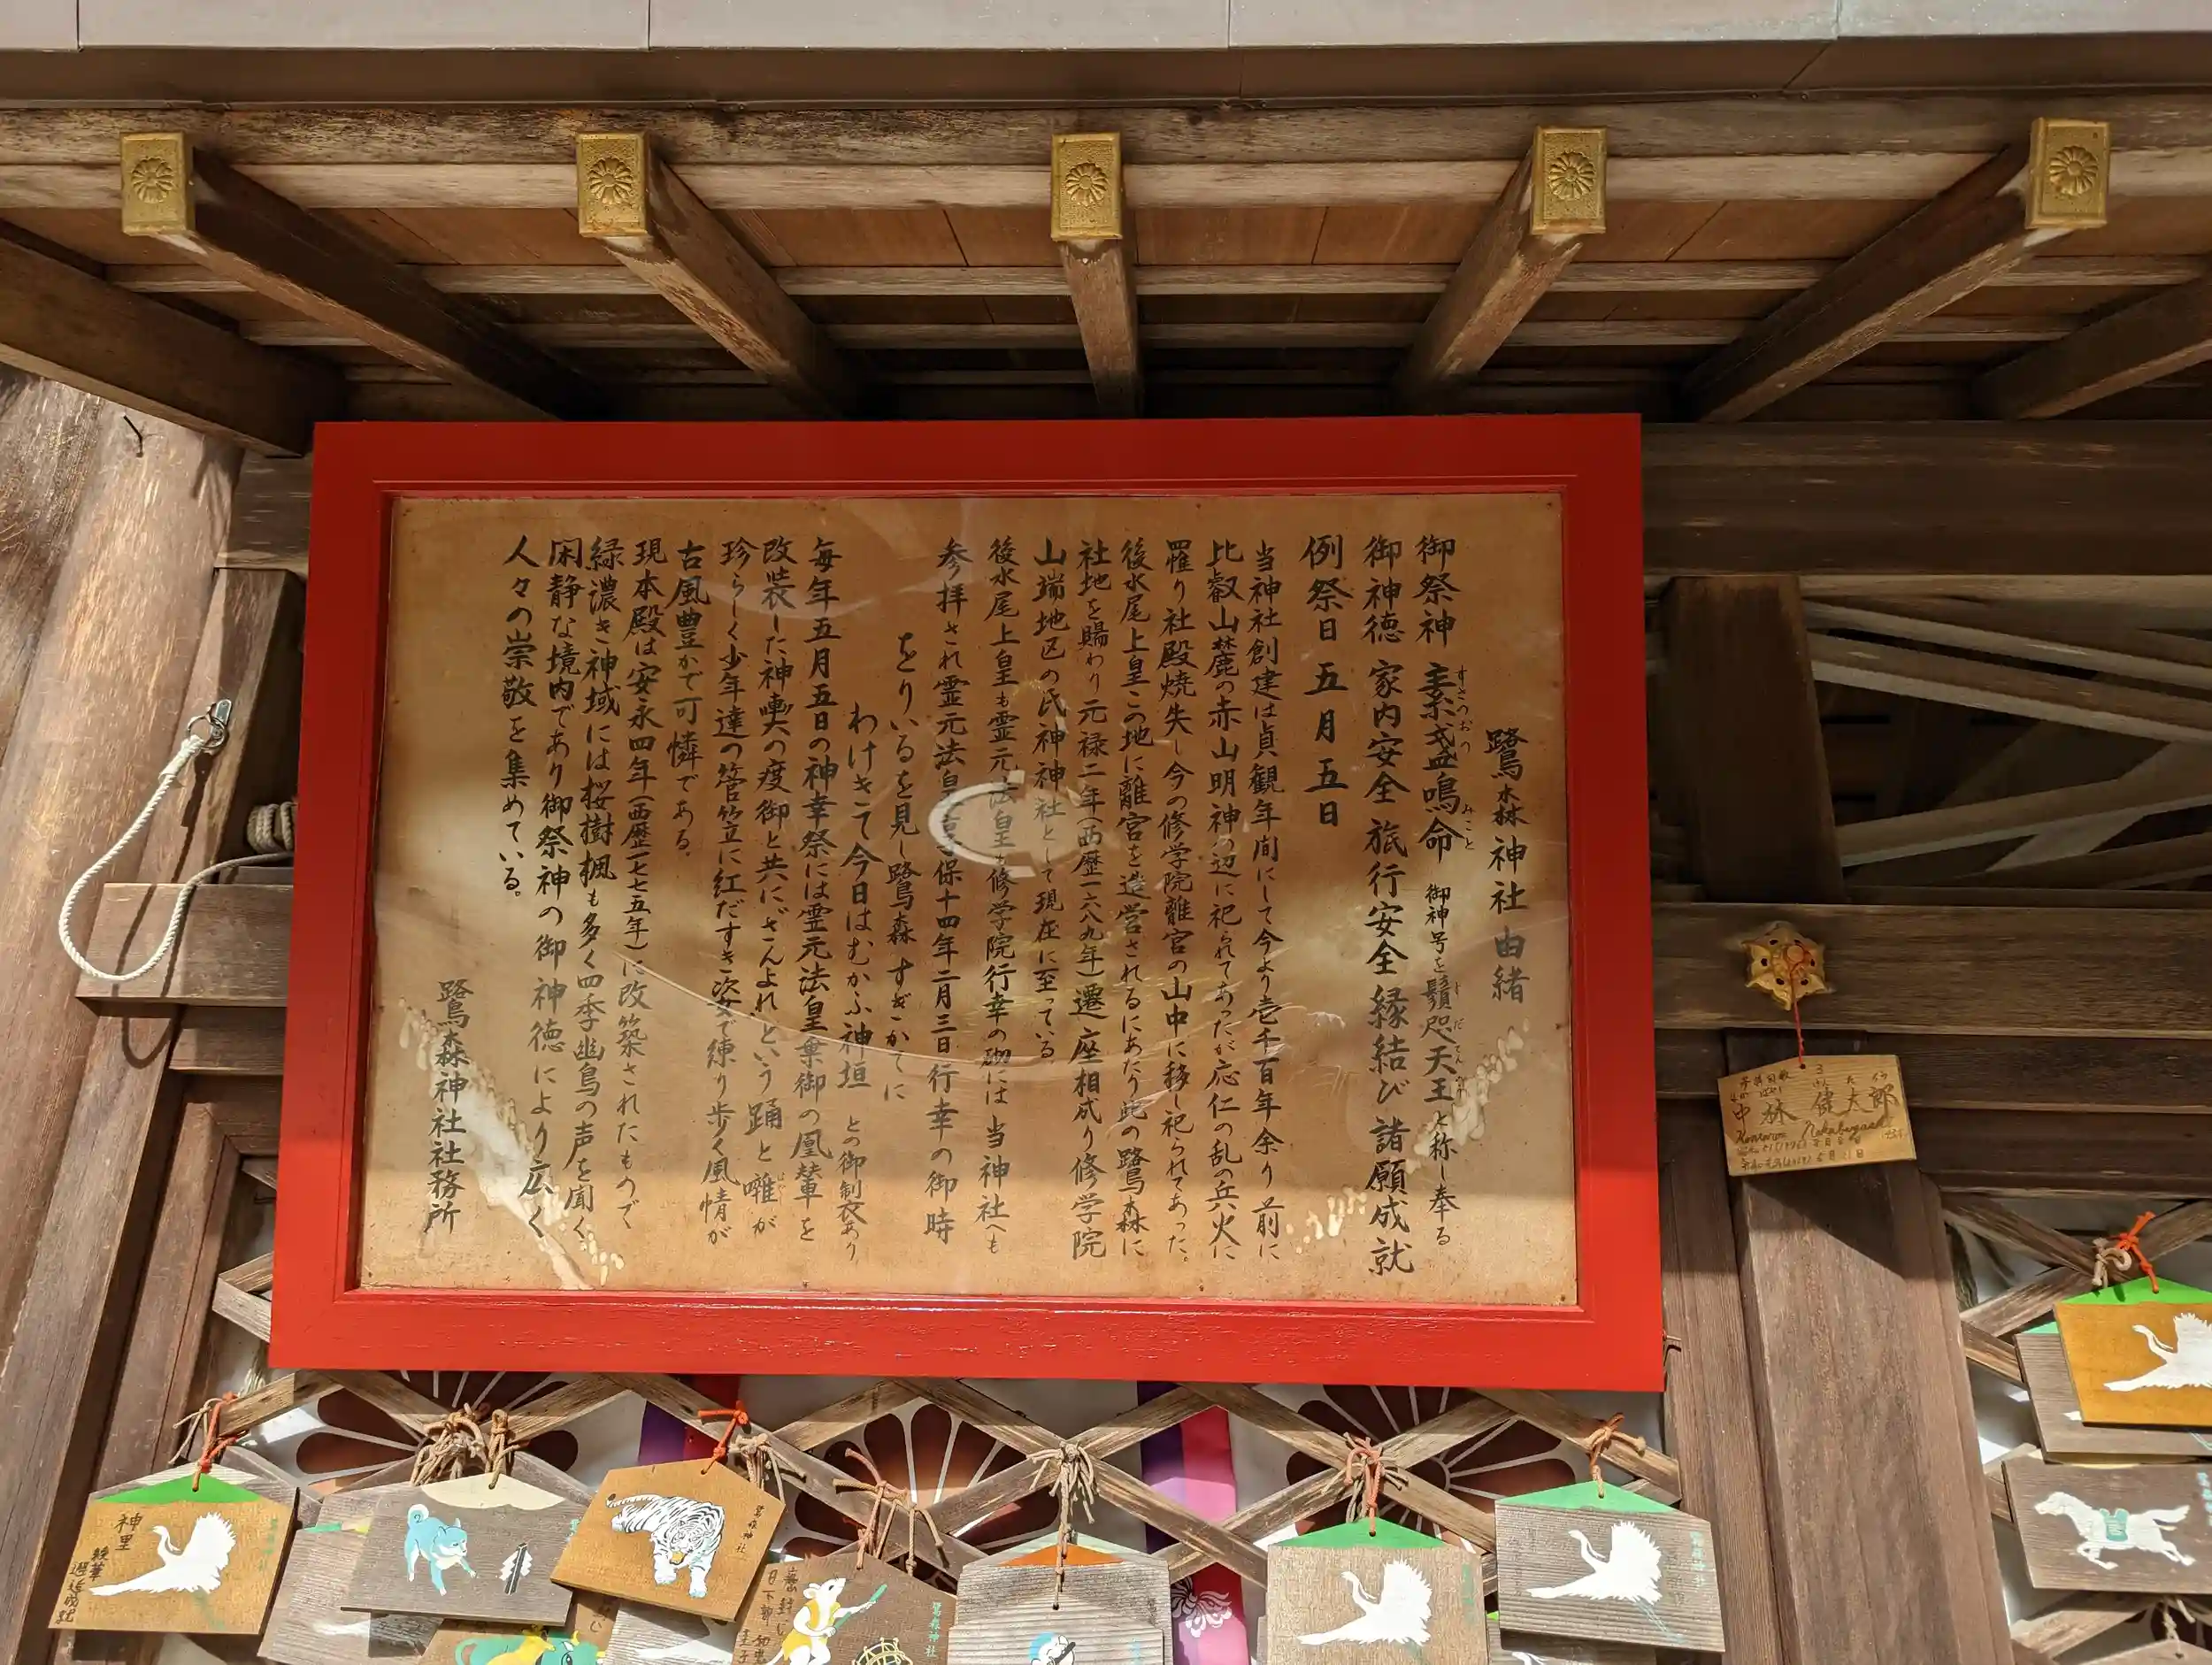 鷺森神社由緒
御祭神 素戔嗚命 御神号を鬚咫天王と称し奉る
すさのおの みこと
御神徳 家内安全 旅行安全 縁結び 諸願成就
例祭日 五月五日
当神社創建は貞観年間にして今より壱千百年余り前に
比叡山麓の赤山明神の辺に祀られてあったが応仁の乱の兵火に
罹り社殿焼失し今の修学院離宮の山中に移し祀られてあった。
後水尾上皇この地に離宮を造営されるにあたり此の鷺森に
社地を賜わり元禄二年(西歴一六八九年)遷座相成り修学院
山端地区の氏神神社として現在に至っている
後水尾上皇も霊元法皇も修学院行幸の砌には当神社へも
参拝され霊元法皇享保十四年二月三日行幸の御時
をりいるを見し鷺森すぎかてに
わけきて今日はむかふ神垣 との御製あり
毎年五月五日の神幸祭には霊元法皇棄御の鳳輦を
改装した神輿の度御と共にざんよれという踊と囃が
珍らしく少年達の菅笠に紅だすき姿で練り歩く風情が
古風豊かで可憐である。
現本殿は安永四年(西歴一七七五年)に改築されたもので
緑濃き神域には桜樹楓も多く四季幽鳥の声を聞く
閑静な境内であり御祭神の御神徳により広く
人々の崇敬を集めている。
鷺森神社社務所
中林 健太郎
Kentaro Nakabayashi
神里
綾華
鷺森神社
鷺森神社